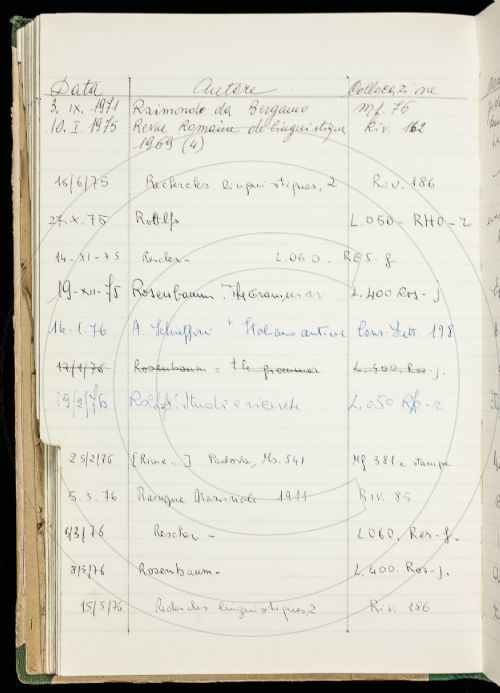 Data Autore Collocazione
3. IX. 1971 Raimondo da Bergamo Mf. 76
10. I. 1975 Revue Romaine de linguistique Riv. 162
1969 (4)
16/6/75 Recherches linguistiques, 2 Riv. 186
27. X. 75 Rohlfs L.050 - RHO - r
14 - XI - 75 L.060. RES. f
19 - XII - 75 Rosenbaum: The Grammar L.400 Ros - j
14. 1. 76 A. Schiaffini Italiano antico Cons. Lett. 198
17/1/76 Rosenbaum = the grammar L. 400. Ros - j.
19/2/76 Rohlfs: Studi e ricerche L.050 - r
25/2/76 [Rime ...] Padova, Ms. 541 Mf 381 e stampe
5. 3. 76 1911 Riv. 85
9/3/76 L060. Res - f.
8/5/76 Rosenbaum - L.400. Ros - j.
15/5/76 Recherches linguistiques, 2 Riv. 186